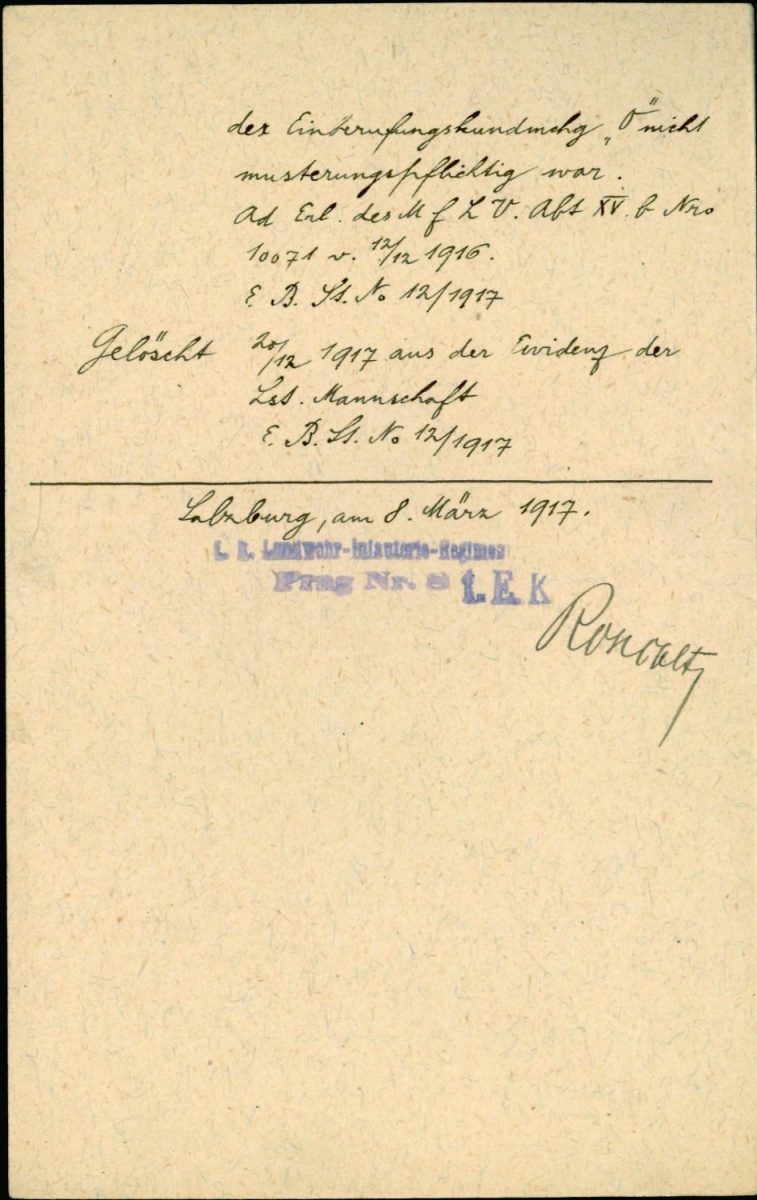 der Einberufungskundmchg „O“ nicht
musterungspflichtig war.
Ad Erl. des M f L V. Abt XV. b Nro
10071 v. 12/12 1916.
E. B. St. No 12/1917
Gelöscht 20/12 1917 aus der Evidenz der
Lst. Mannschaft
E. B. St. No 12/1917
Salzburg, am 8. März 1917.
k. k. Landwehr-Infanterie-Regiment
Prag Nr. 8 I. E. K